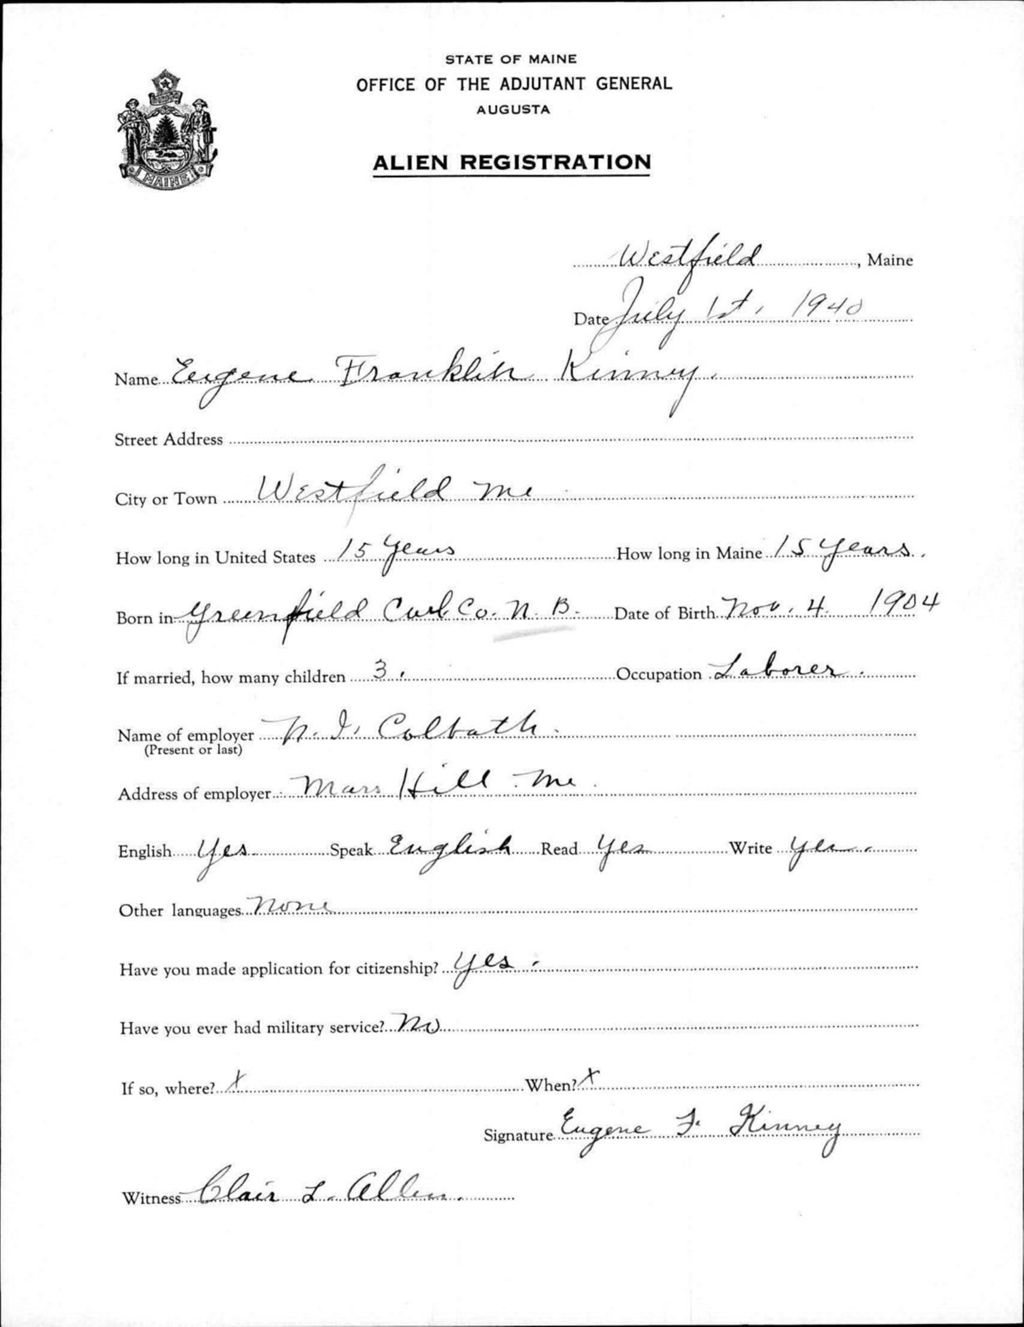 STATE OF MAINE
OFFICE OF THE ADJUTANT GENERAL
AUGUSTA
ALIEN REGISTRATION
MAINE
Westfield, Maine
Date July 1st, 1940
Name Eugene Franklin Kinney.
Street Address
City or Town Westfield Me
How long in United States 15 years How long in Maine 15 years.
Born in Greenfield Carl. Co. N. B. Date of Birth Nov. 4. 1904
If married, how many children 3. Occupation Laborer.
Name of employer N. I. Colbath.
(Present or last)
Address of employer Mars Hill Me.
English Yes Speak English Read Yes Write Yes.
Other languages None
Have you made application for citizenship? Yes.
Have you ever had military service? No
If so, where? X When? X
Signature Eugene F. Kinney
Witness Clair L. Allen.